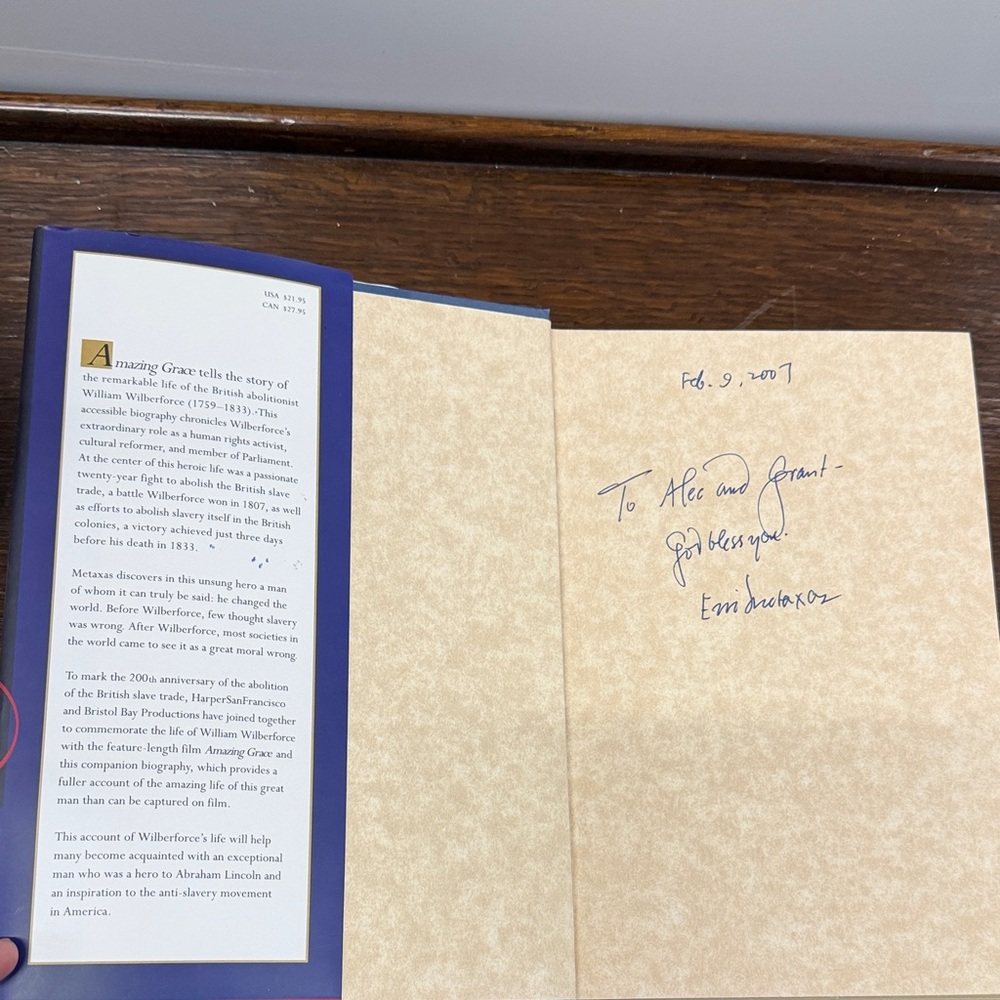 USA $21.95
CAN $27.95
Amazing Grace tells the story of
the remarkable life of the British abolitionist
William Wilberforce (1759–1833). This
accessible biography chronicles Wilberforce's
extraordinary role as a human rights activist,
cultural reformer, and member of Parliament.
At the center of this heroic life was a passionate
twenty-year fight to abolish the British slave
trade, a battle Wilberforce won in 1807, as well
as efforts to abolish slavery itself in the British
colonies, a victory achieved just three days
before his death in 1833.
Metaxas discovers in this unsung hero a man
of whom it can truly be said: he changed the
world. Before Wilberforce, few thought slavery
was wrong. After Wilberforce, most societies in
the world came to see it as a great moral wrong.
To mark the 200th anniversary of the abolition
of the British slave trade, HarperSanFrancisco
and Bristol Bay Productions have joined together
to commemorate the life of William Wilberforce
with the feature-length film Amazing Grace and
this companion biography, which provides a
fuller account of the amazing life of this great
man than can be captured on film.
This account of Wilberforce's life will help
many become acquainted with an exceptional
man who was a hero to Abraham Lincoln and
an inspiration to the anti-slavery movement
in America.
Feb. 9, 2007
To Alec and Grant -
God bless you.
Eric Metaxas